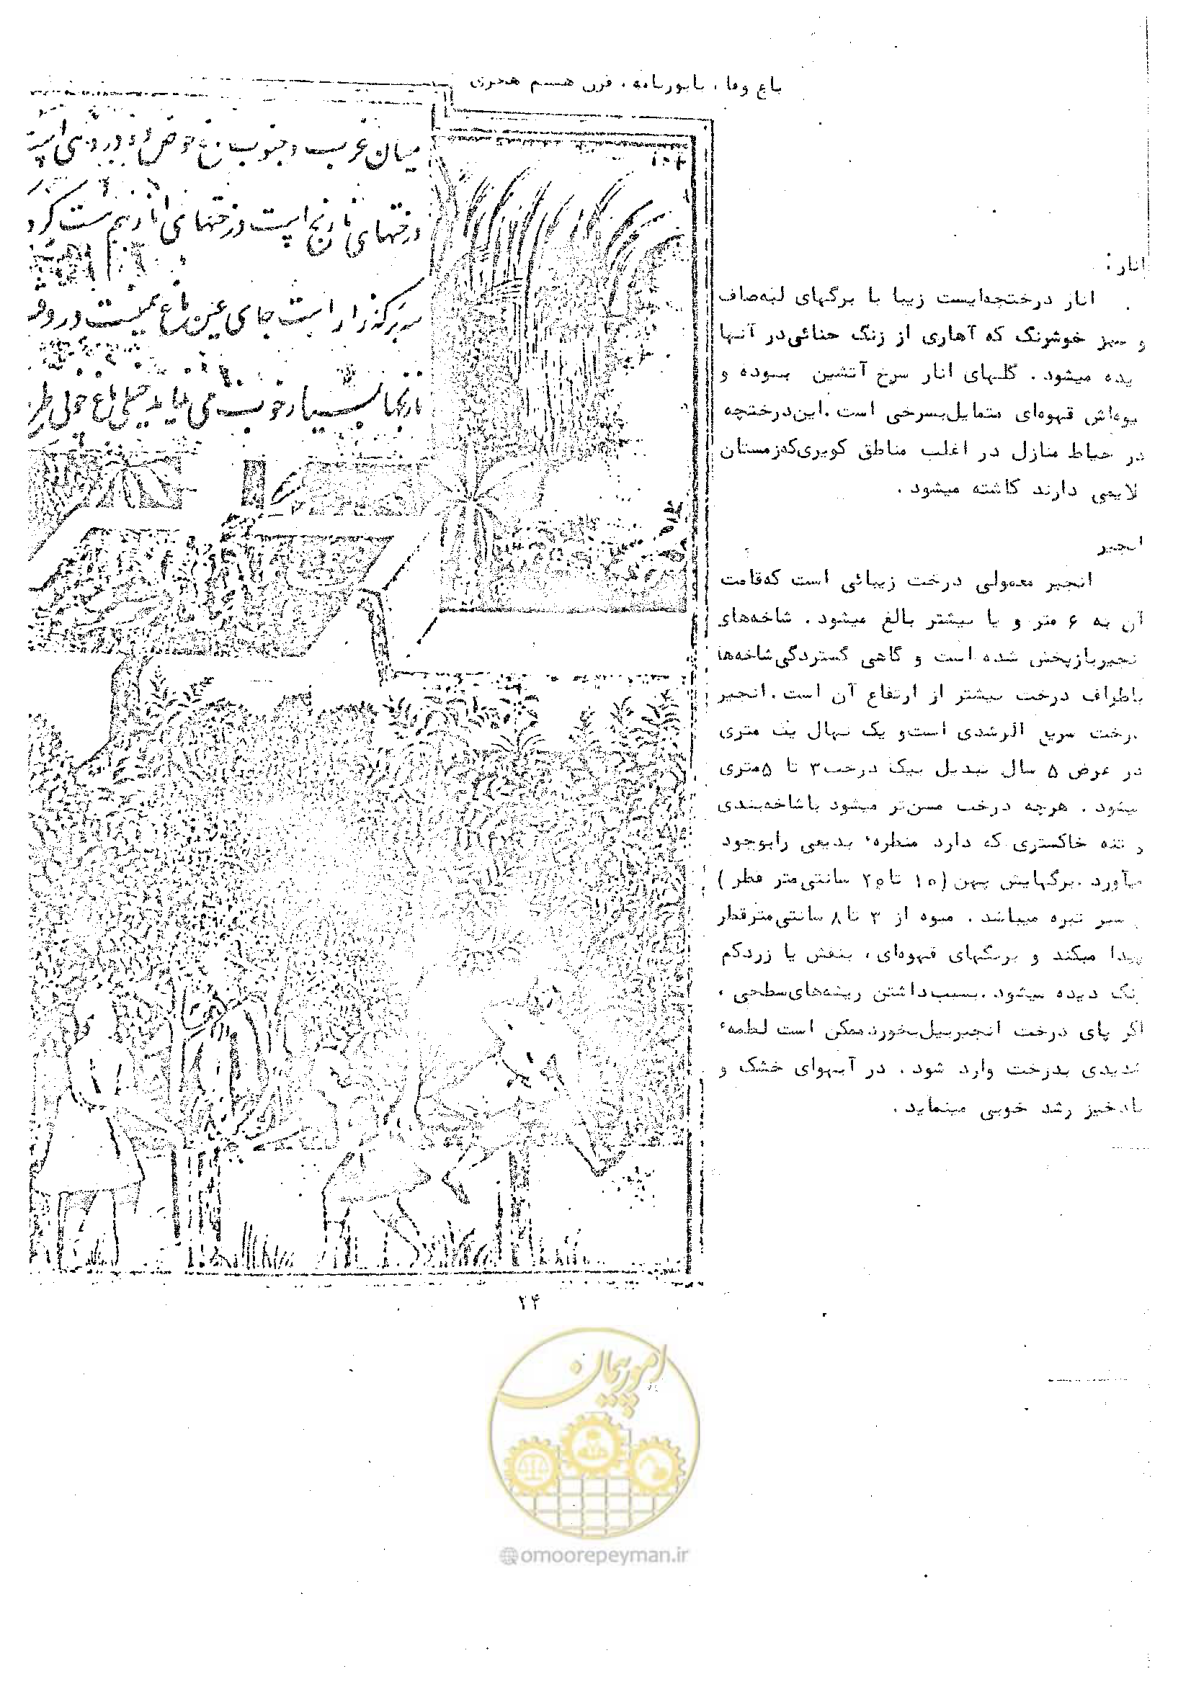 باغ وفا ، بابورنامه ، قرن هشتم هجری
میان غرب و جنوب
درختهای نارنج است درختهای انار هم هست
سه برکه زار است جای عین باغ
نارنجها بسیار خوب می نماید
انار :
انار درختچه‌ایست زیبا با برگهای لبه‌صاف
و سبز خوشرنگ که آهاری از رنگ حنائی‌در آنها
یده میشود . گلهای انار سرخ آتشین بوده و
یوه‌اش قهوه‌ای متمایل‌بسرخی است .این‌درختچه
در حیاط منازل در اغلب مناطق کویری‌که‌زمستان
لایمی دارند کاشته میشود .
انجیر
انجیر معمولی درخت زیبائی است که‌قامت
آن به ۶ متر و یا بیشتر بالغ میشود . شاخه‌های
نجیربازپخش شده است و گاهی گستردگی‌شاخه‌ها
باطراف درخت بیشتر از ارتفاع آن است .انجیر
درخت سریع الرشدی است‌و یک نهال یک متری
در عرض ۵ سال تبدیل بیک درخت۳ تا ۵متری
میشود . هرچه درخت مسن‌تر میشود باشاخه‌بندی
و تنه خاکستری که دارد منظره‌ء بدیعی رابوجود
میآورد .برگهایش پهن (۱۰ تا۲۵ سانتی‌متر قطر )
سبز تیره میباشد . میوه از ۳ تا۸ سانتی‌مترقطر
پیدا میکند و برنگهای قهوه‌ای، بنفش یا زردکم
رنگ دیده میشود .بسبب‌داشتن ریشه‌های‌سطحی ،
اگر پای درخت انجیربیل‌بخوردممکن است لطمه‌ء
شدیدی بدرخت وارد شود . در آب‌وهوای خشک و
بادخیز رشد خوبی مینماید .
۲۴
امور پیمان
@omoorepeyman.ir